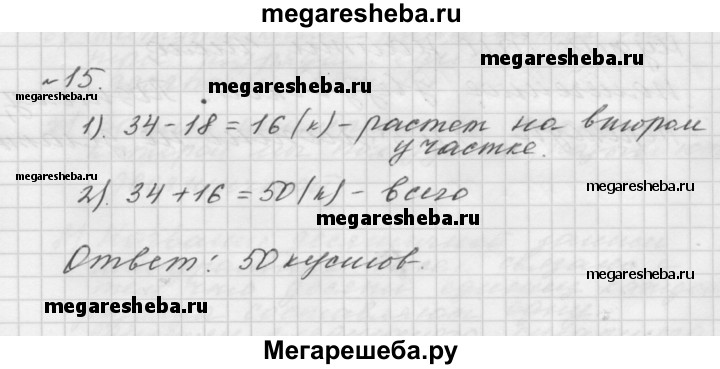 megaresheba.ru
megaresheba.ru
№15.
megaresheba.ru
megaresheba.ru
1). 34-18=16(к)-растет на втором
участке.
megaresheba.ru
megaresheba.ru
2). 34+16=50(к)-всего
megaresheba.ru
Ответ: 50 кустов.
megaresheba.ru
megaresheba.ru
megaresheba.ru
Мегарешеба.ру